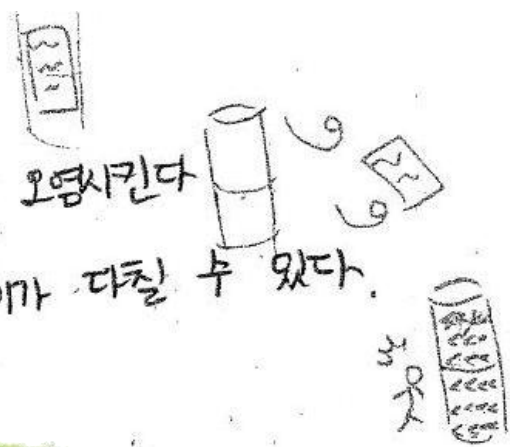 오염시킨다
이가 다칠 수 있다.